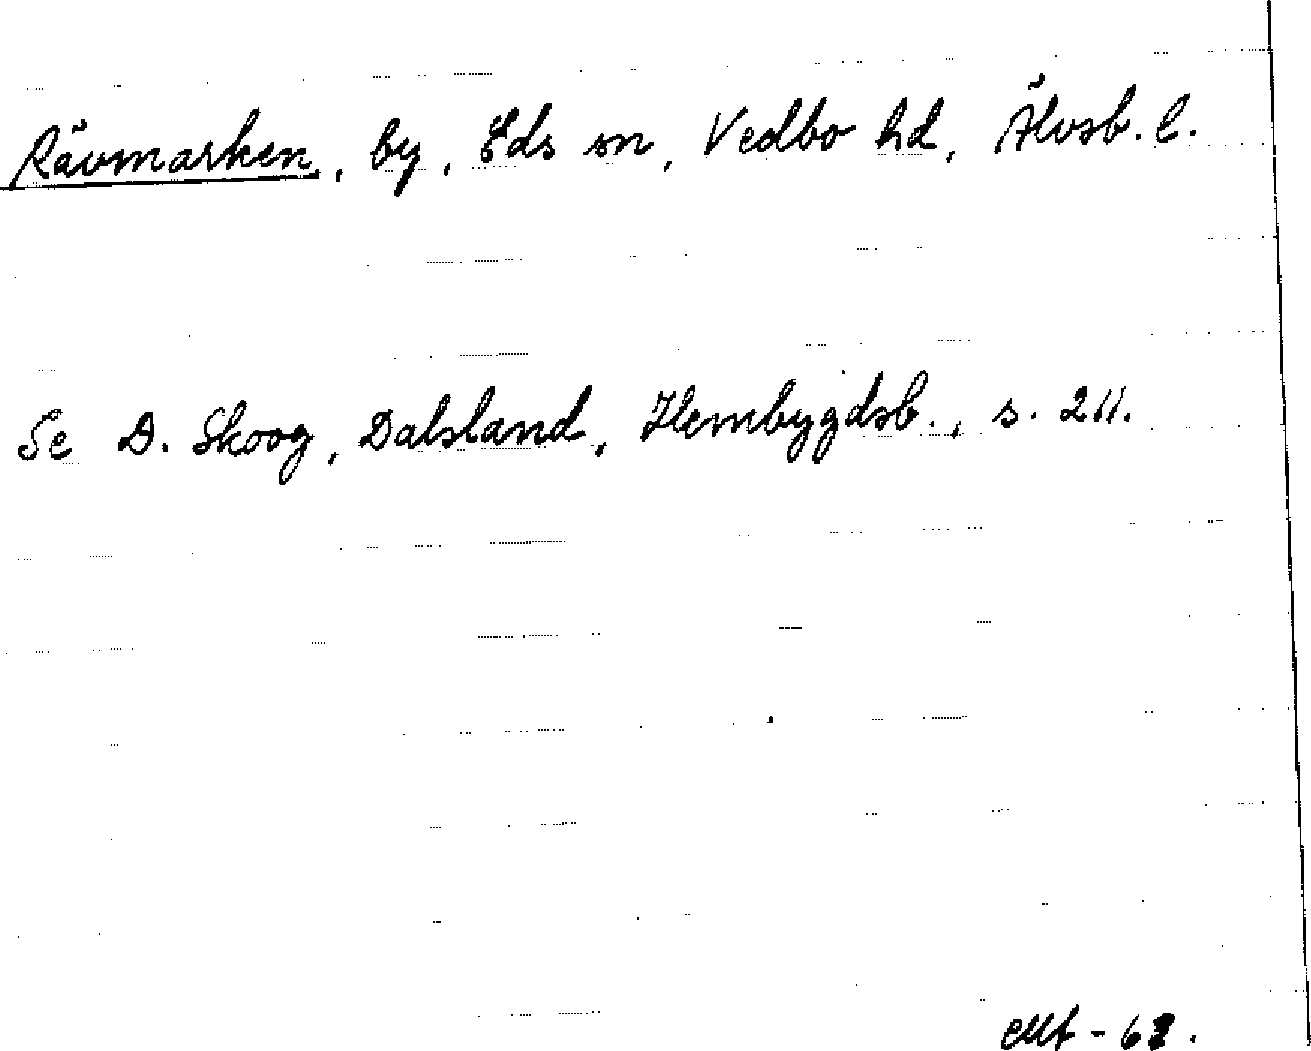 Rävmarken, by, Eds sn, Vedbo hd, Älvsb. l.
Se D. Skoog, Dalsland, Hembygdsb., s. 211.